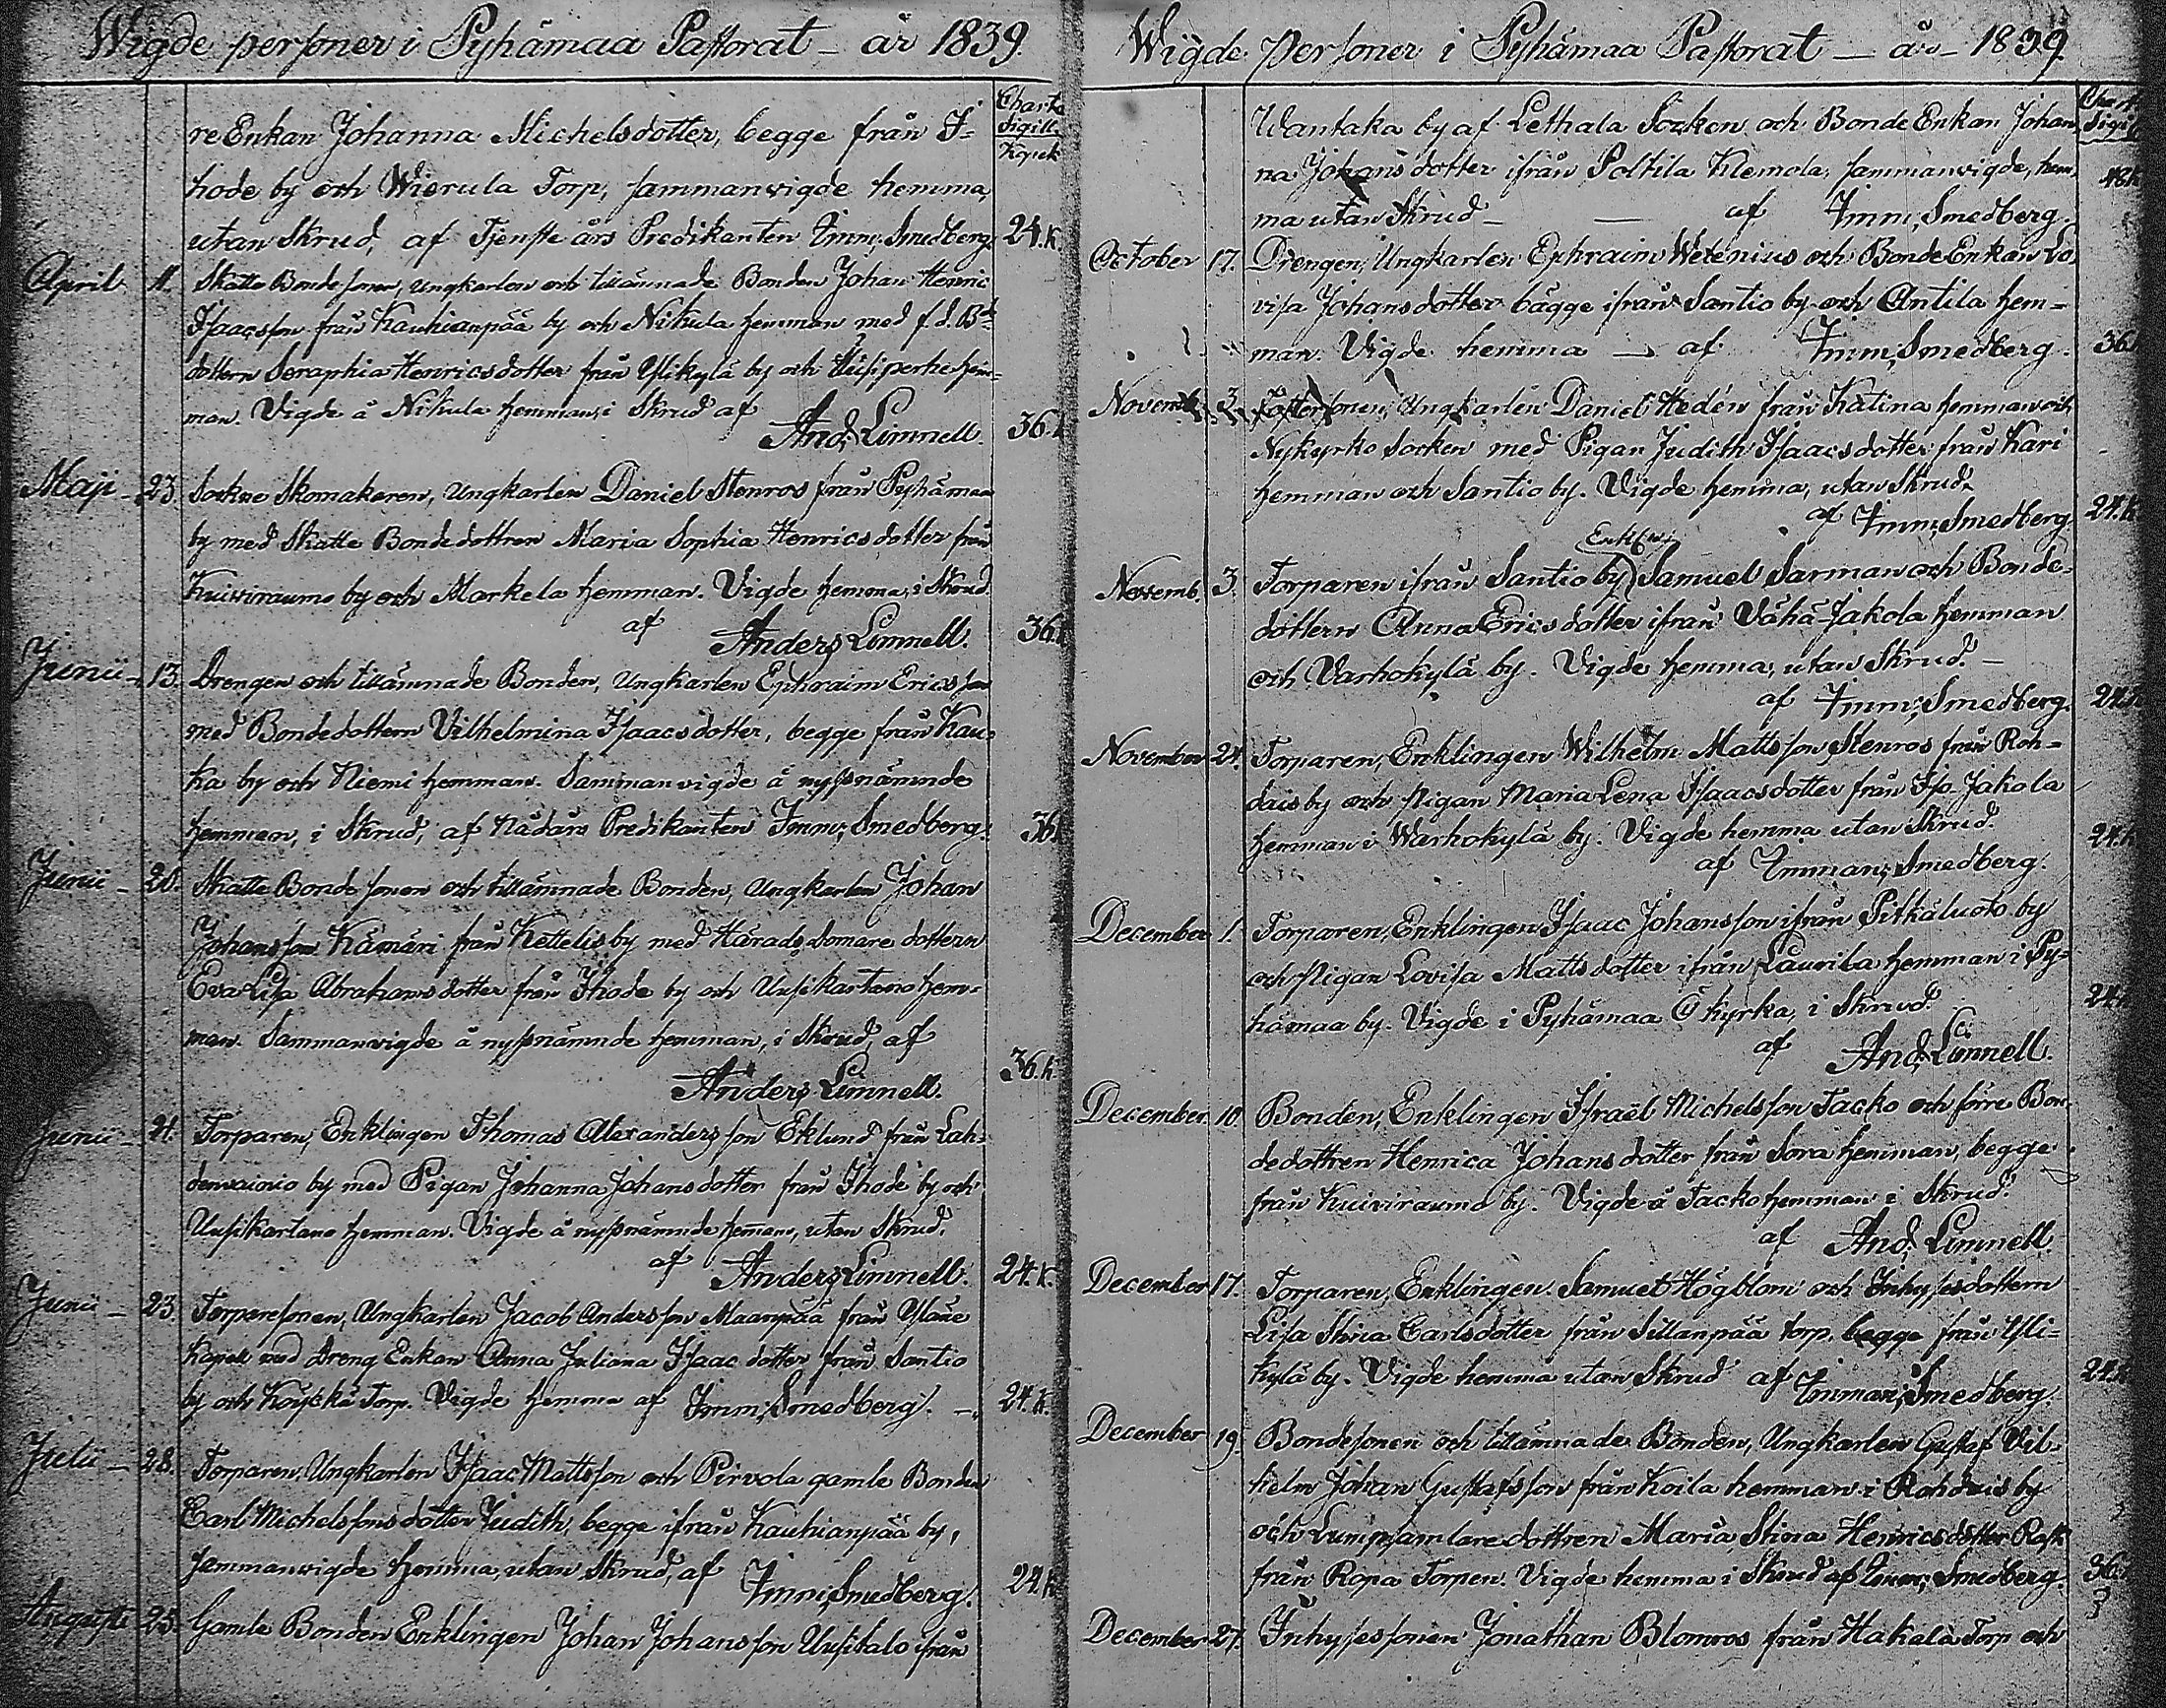 Wigde personer i Pyhämaa Pastorat – år 1839.
Charte Sigill. Kopek
re Enkan Johanna Michelsdotter, begge från I-
hode by och Wierula Torp, sammanvigde hemma,
utan Skrud, af Tjenste års Predikanten Imm; Smedberg. 24. k.
April 11. Skatte Bonde sonen, ungkarlen och tillämnade Bonden Johan Henric
Isaacsson från Kauhianpää by och Nikula hemman med f.d. Bde
dottern Seraphia Henricsdotter från Ylikylä by och hem-
man. Vigde å Nikula hemman, i Skrud af
And; Limnell. 36. k
Maji – 23. Sockne Skomakaren, Ungkarlen Daniel Stenros från Pyhämaa
by med Skatte Bondedottren Maria Sophia Henricsdotter från
Kuivirauma by och Markela hemman. Vigde hemma, i Skrud
af Anders Limnell. 36. k
Junii – 13. Drengen och tillämnade Bonden, Ungkarlen Ephraim Ericsson
med Bondedottern Vilhelmina Isaacsdotter, begge från Kau-
ka by och Niemi hemman. Sammanvigde å nyssnämnde
hemman, i Skrud, af Nådårs Predikanten Imm; Smedberg. 36 k
Junii – 20. Skatte Bonde sonen och tillämnade Bonden, Ungkarlen Johan
Johansson Kämäri från Kettelis by med Härads domare dottern
Eva Lisa Abrahamsdotter från Ihode by och Uusikartano hem-
man. Sammanvigde å nyssnämnde hemman, i Skrud, af
Anders Limnell. 36. k
Junii – 21. Torparen, Enklingen Thomas Alexandersson Eklund från Lah-
denvainio by med Pigan Johanna Johansdotter från Ihode by och
Uusikartano hemman. Vigde å nyssnämnde heman, utan Skrud.
af Anders Limnell. 24. k.
Junii – 23. Torparesonen, Ungkarlen Jacob Andersson Maanpää från Yläne
Kapell med Dreng Enkan Anna Juliana Isaacdotter från Santio
by och Köyckä Torp. Vigde hemma af Imm; Smedberg. – 24. k.
Julii – 28. Torparen, Ungkarlen Isaac Mattsson och Pirvola gamle Bonden
Carl Michelssons dotter Judith, begge ifrån Kauhianpää by,
sammanvigde hemma, utan Skrud, af Imm; Smedberg. 24. k
Augusti 25. Gamle Bonden Enklingen Johan Johansson Uusitalo från
Wigde Personer i Pyhämaa Pastorat – år – 1839
Chart Sigill
Wantaka by af Lethala Socken och Bonde Enkan Johan-
na Johansdotter ifrån Poltila Klemola, sammanvigde, hem- 48 k
ma utan Skrud – af Imm; Smedberg.
October 17. Drengen, Ungkarlen Ephraim Wetenius och Bonde Enkan Lo-
visa Johansdotter bägge ifrån Santio by och Antila hem-
man. Vigde hemma – af Imm; Smedberg. 36
Novemb. 3. Ungkarlen Daniel Hedén från Kätina hemman och
Nykyrko Socken med Pigan Judith Isaacsdotter från Kari
hemman och Santio by. Vigde hemma, utan Skrud.
af Imm; Smedberg. 24. k
Enkl
Novemb. 3. Torparen ifrån Santio by Samuel Sarman och Bonde-
dottern Anna Ericsdotter ifrån Vähä-Jakola hemman
och Varhokylä by. Vigde hemma, utan Skrud. –
af Imm; Smedberg. 24. k
November 24. Torparen, Enklingen Wilhelm Mattsson Stenros från Roh-
dais by och Pigan Maria Lena Isaacsdotter från Iso Jakola
hemman i Warhokylä by. Vigde hemma utan Skrud. 24. k
af Imman; Smedberg.
December 1. Torparen, Enklingen Isaac Johansson ifrån Pitkäluoto by
och Pigan Lovisa Mattsdotter ifrån Laurila hemman i Py-
hämaa by. Vigde i Pyhämaa Ö kyrka, i Skrud. 24. k
af And; Limnell.
December 10. Bonden, Enklingen Israël Michelsson Jacko och förre Bon-
dedottren Henrica Johansdotter från Sora hemman, begge
från Kuivirauma by. Vigde å Jacko hemman i Skrud.
af And; Limnell.
December 17. Torparen, Enklingen Samuel Högblom och Inhysesdottern
Lisa Stina Carlsdotter från Sillanpää torp, begge från Yli-
kylä by. Vigde hemma utan Skrud af Imman; Smedberg. 24. k
December 19. Bondesonen och tillämnade Bonden, Ungkarlen Gustaf Vil-
helm Johan Gustafsson från Koila hemman i Rohdais by
och Lumpsamlaredottren Maria Stina Henricsdotter
från Ropa Torpen. Vigde hemma i Skrud af Imm; Smedberg. 36
December 27. Inhysessonen Jonathan Blomros från Hakala Torp och